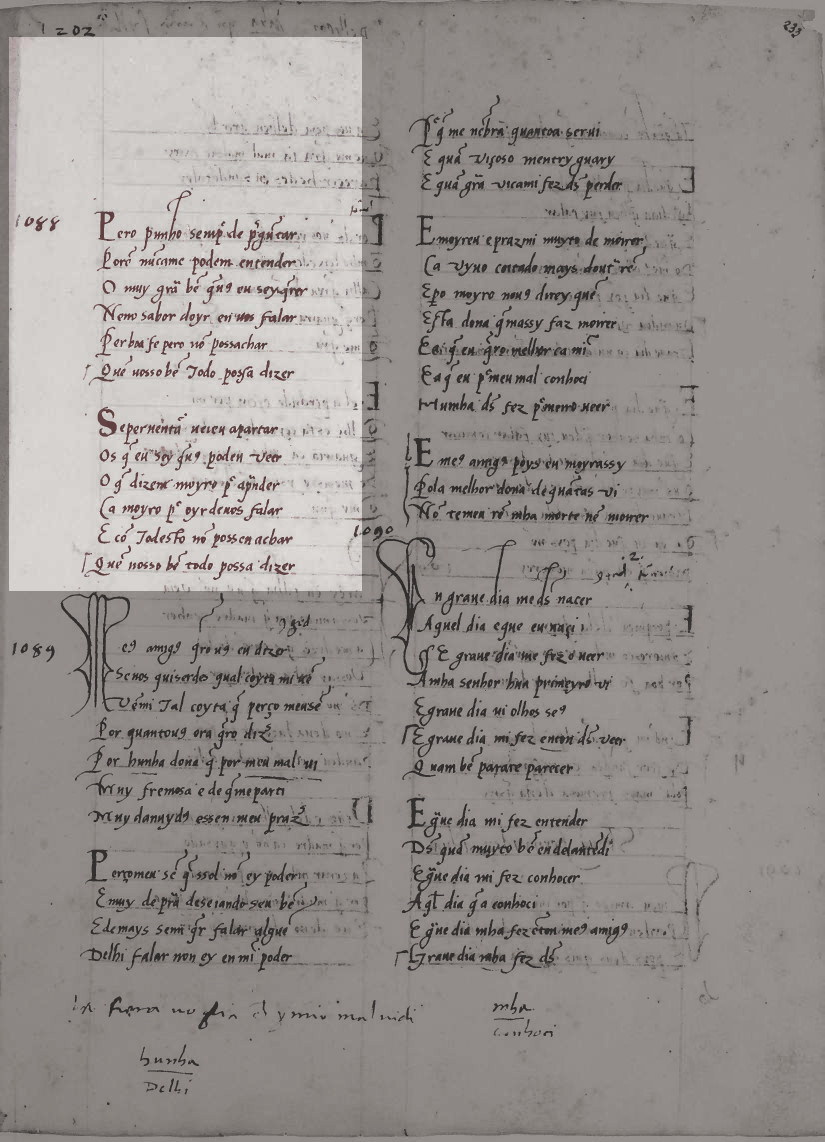 1202
233
1088
Pero punho semp̃ de p̃gũtar
Porẽ nũca me podem entender
O muy grã bẽ q̃ u9 eu sey q̃rer
Neno sabor doyr en uos falar
Per boa fe pero nõ poss achar
Quẽ uosso bẽ Todo possa dizer
Os q̃ eu sey q̃ u9 poden veer
O q̃ dizem moyro p̃ ap̃nder
Ca moyro p̃ oyr de uos falar
E cõ Tod esto nõ possen achar
Quẽ uosso bẽ todo possa dizer
1089
Me9 amig9 q̃ro u9 eu dizer
Se uos quiserdes qual coyta mi uẽ
Vẽmi Tal coyta q̃ perço meu sẽ
Por quanto u9 ora q̃ro diz̃
Por hunha dona q̃ por meu mal ui
Muy fremosa e de q̃ me parti
Muy dannyd9 e ssen meu praz̃
Perço meu sẽ q̃ ssol nõ ey poder
E muy de prã deseiando seu bẽ
E demays sem q̃r falar alguẽ
Delhi falar non ey en mĩ poder
hunha
Delhi
P̃ q̃ me nẽbrã quant a serui
E quã viçoso mentr y guary
E quã grã viç a mi fez ds̃ perder
E moyreu e praz mi muyto de morrer
Ca vyuo coitado mays dout̃ rẽ
E p̃o moyro nou9 direy quẽ
Esta dona q̃ massy faz morrer
E a q̃ eu p̃ meu mal conhoci
Numha ds̃ fez p̃meiro ueer
E me9 amig9 poys eu moyr assy
Pola melhor dona de quãtas vi
Nõ temeu rẽ mha morte nẽ morrer
1090
En graue dia me ds̃ nacer
Aquel dia e que eu naçi
E graue dia me fez o ueer
A mha senhor hua primeyro vi
E graue dia ui olhos se9
E graue dia mi fez enton ds̃ veer
Quam bẽ parate parecer
E g̃ue dia mi fez entender
Ds̃ quã muyto bẽ en delantedi
E g̃ue dia mi fez conhocer
Aq̃l dia q̃ a conhoci
E g̃ue dia mha fez cõ me9 amig9
Graue dia mha fez ds̃
mha
conhoci